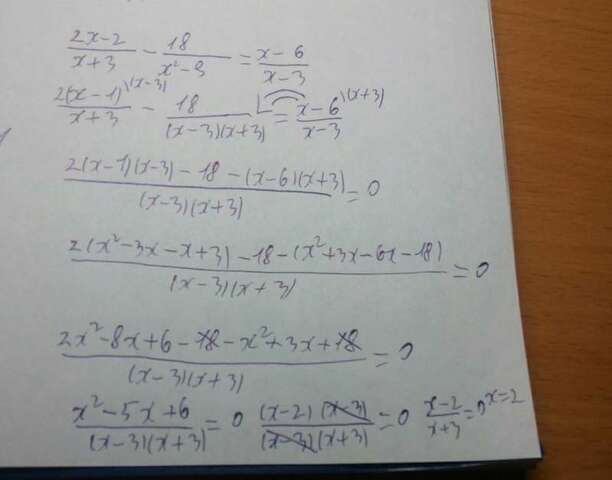 (2x-2)/(x+3) - 18/(x²-9) = (x-6)/(x-3)
2(x-1)\(x-3)/(x+3) - 18/((x-3)(x+3)) = (x-6)\(x+3)/(x-3)
(2(x-1)(x-3)-18-(x-6)(x+3))/((x-3)(x+3)) = 0
(2(x²-3x-x+3)-18-(x²+3x-6x-18))/((x-3)(x+3)) = 0
(2x²-8x+6-18-x²+3x+18)/((x-3)(x+3)) = 0
(x²-5x+6)/((x-3)(x+3)) = 0 ((x-2)(x-3))/((x-3)(x+3)) = 0 (x-2)/(x+3) = 0 x=2